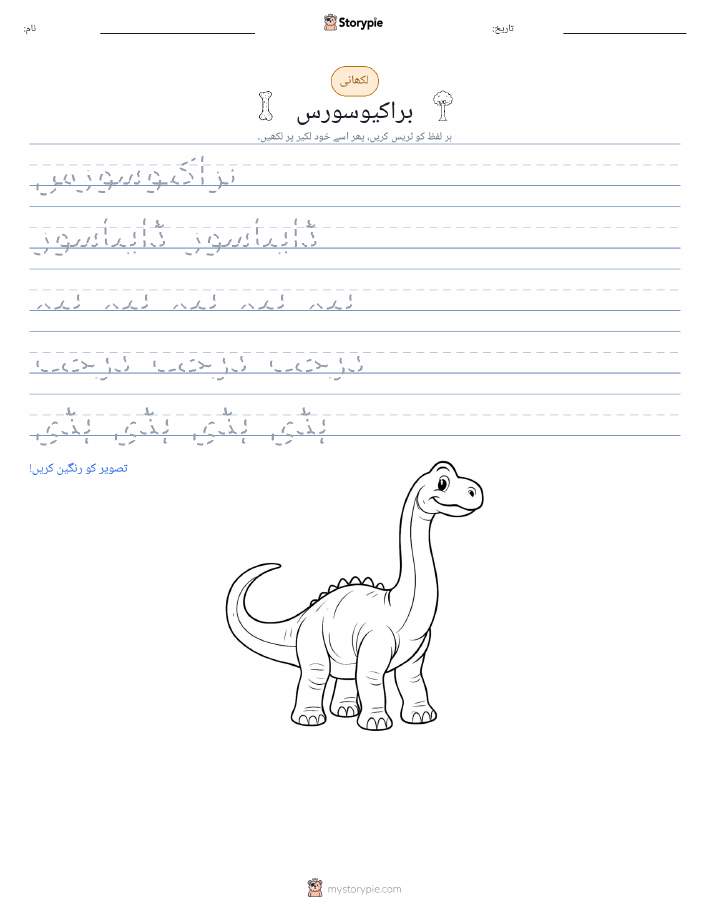 نام:
Storypie
تاریخ:
لکھائی
براکیوسورس
ہر لفظ کو ٹریس کریں، پھر اسے خود لکیر پر لکھیں۔
براکیوسورس
ڈایناسور ڈایناسور
درخت درخت درخت
ہڈی ہڈی ہڈی ہڈی
تصویر کو رنگین کریں!
mystorypie.com